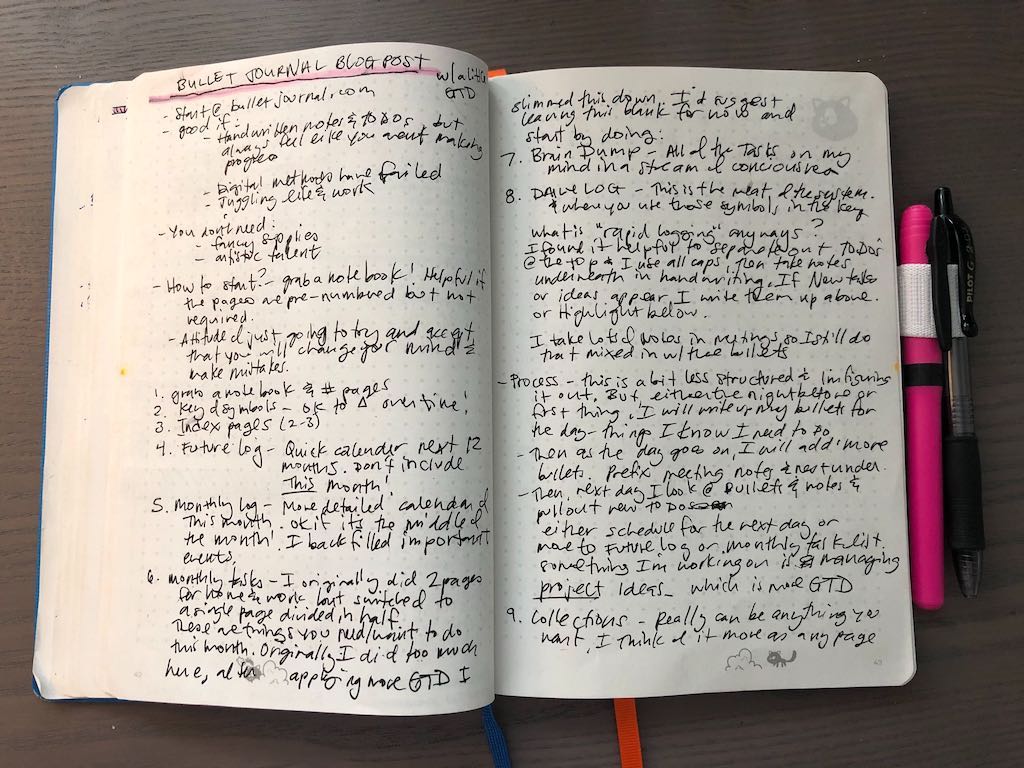 BULLET JOURNAL BLOGPOST
w/a little
GTD
- start @ bulletjournal.com
- good if:
- Handwritten notes & TODOs but
always feel like you aren't making
progress
- Digital methods have failed
- Juggling life & work
- You don't need:
- fancy supplies
- artistic talent
- How to start? - grab a notebook! Helpful if
the pages are pre-numbered but not
required.
- Attitude of just going to try and accept
that you will change your mind &
make mistakes.
1. grab a notebook & # pages
2. Key of symbols - ok to Δ over time!
3. Index pages (2-3)
4. Future log - Quick calendar next 12
months. Don't include
This month!
5. Monthly log - More detailed calendar of
This month. ok if it's the middle of
the month! I back filled important
events.
6. monthly tasks - I originally did 2 pages
for home & work but switched to
a single page divided in half.
These are things you need/want to do
this month. Originally I did too much
here, after applying more GTD I
slimmed this down. I'd suggest
leaving this blank for now and
start by doing:
7. Brain Dump - All of the Tasks on my
mind in a stream of conciousness
8. DAILY LOG - This is the meat of the system.
& where you use those symbols in the key
what is "rapid logging" anyways?
I found it helpful to separate out TODOS
@ the top & I use all caps, Then take notes
underneath in handwriting. If New tasks
or ideas appear, I write them up above.
or Highlight below.
I take lots of notes in meetings, so I still do
that mixed in w/ the bullets
- Process - this is a bit less structured & Im figuring
it out. But, either the night before or
first thing, I will write up my bullets for
the day - things I know I need to Do
- Then as the day goes on, I will add more
bullets. Prefix meeting notes & nest under.
- Then, next day I look @ bullets & notes &
pull out new to Dos
either schedule for the next day or
move to Future log or monthly task list.
something Im working on is managing
project Ideas - which is more GTD
9. Collections - Really can be anything you
want, I think of it more as any page
PILOT G-2